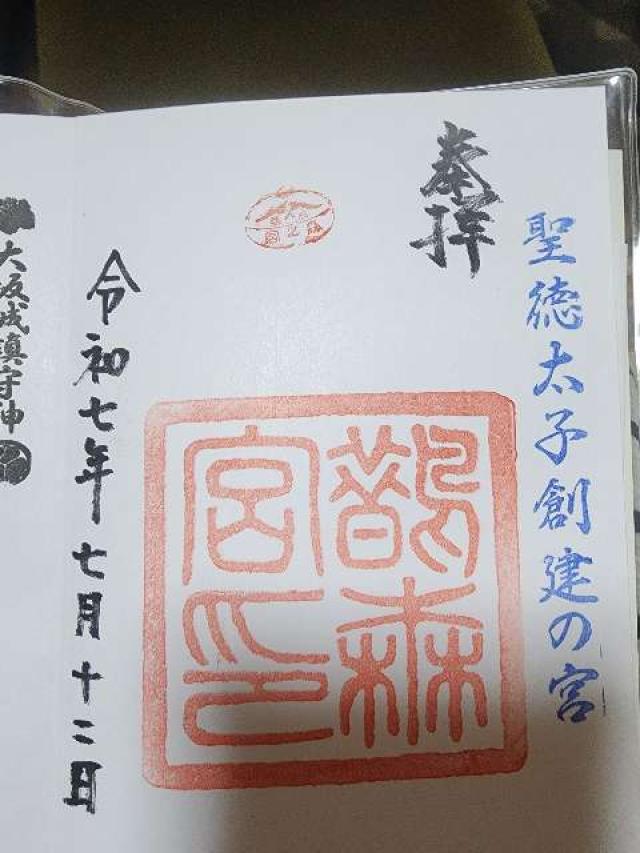 聖徳太子創建の宮
奉拝
鵲森
宮印
令和七年七月十二日
大坂城鎮守神